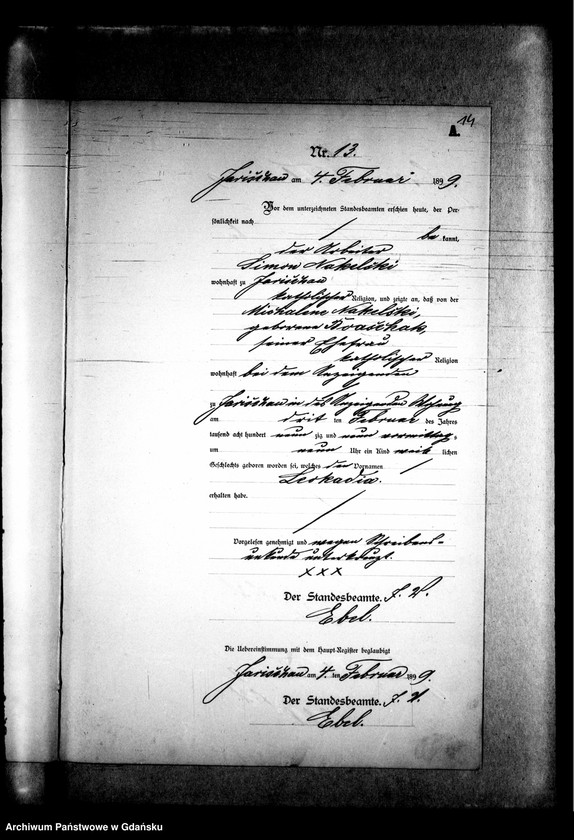 14
A.
Nr. 13.
am 4. Februar 1899.
Vor dem unterzeichneten Standesbeamten erschien heute, der Per-
sönlichkeit nach
be kannt,
der Arbeiter
Simon Nakelski
wohnhaft zu
katholischer Religion, und zeigte an, daß von der
Michalene Nakelski,
geborene
seiner Ehefrau
katholischer Religion
wohnhaft bei dem Anzeigenden
zu in des Anzeigenden Wohnung
am drit ten Februar des Jahres
tausend acht hundert neun zig und neun vormittags
um neun Uhr ein Kind weib lichen
Geschlechts geboren worden sei, welches den Vornamen
Leokadia.
erhalten habe.
Vorgelesen genehmigt und wegen Schreibens-
unkunde unterkreuzt.
XXX
Der Standesbeamte. J. V.
Ebel.
Die Uebereinstimmung mit dem Haupt-Register beglaubigt
am 4. ten Februar 1899.
Der Standesbeamte. J. V.
Ebel.
Archiwum Państwowe w Gdańsku